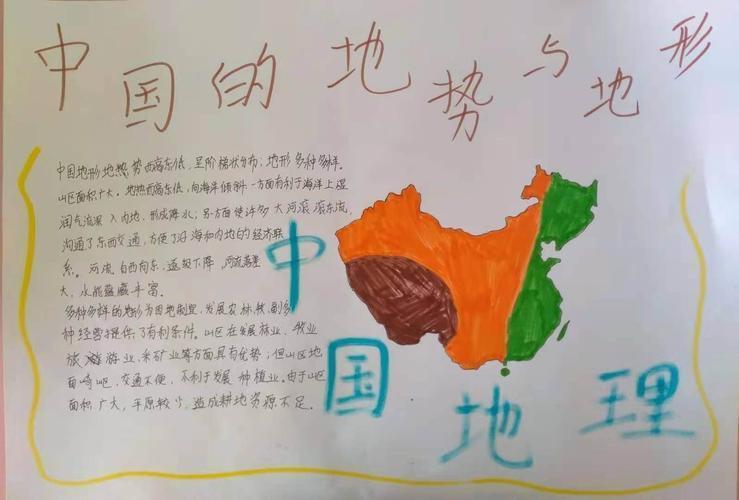 中国的地势与地形
中国地形地热势西高东低,呈阶梯状分布;地形多种多样。
山区面积广大。地热西高东低,向海洋倾斜一方面有利于海洋上湿
润气流深入内地,形成降水;另一方面使许多大河滚滚东流,
沟通了东西交通,方便了沿海和内地的经济联
系。河流自西向东,逐级下降,河流落差
大,水能蕴藏丰富。
多种多样的地形为因地制宜,发展农林牧副多
种经营提供了有利条件。山区在发展林业、牧业
旅游业,采矿业等方面具有优势;但山区地
面崎岖,交通不便,不利于发展种植业。由于山区
面积广大,平原较少,造成耕地资源不足。
中国地理